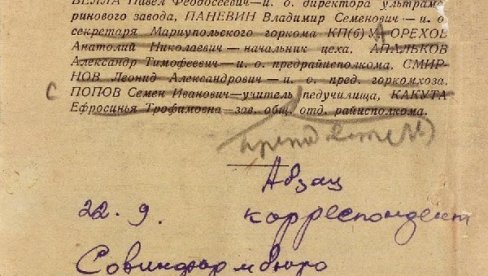 БЕЛЛА Павел Феодосеевич—и. о. директора ультрама-
ринового завода, ПАНЕВИН Владимир Семенович — и. о.
секретаря Мариупольского горкома КП(б)У, ОРЕХОВ
Анатолий Николаевич — начальник цеха, АПАЛЬКОВ
Александр Тимофеевич— и. о. предрайисполкома, СМИР-
НОВ Леонид Александрович — и. о. пред. горкомхоза,
С ПОПОВ Семен Иванович—учитель педучилища, КАКУТА
Ефросинья Трофимовна— зав. общ. отд. райисполкома.
Абзац
22. 9. корреспондент
Совинформбюро